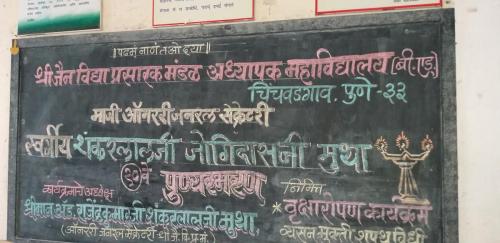 ॥ पढमं नाणं तओ दया ॥
श्री जैन विद्या प्रसारक मंडळ अध्यापक महाविद्यालय (बी.एड्)
चिंचवडगाव, पुणे-३३
माजी ऑनररी जनरल सेक्रेटरी
स्वर्गीय शंकरलालजी जोगिदासजी मुथा
पुण्यस्मरण
निमित्त
कार्यक्रमाचे अध्यक्ष
श्रीमान अॅड. राजेंद्रकुमारजी शंकरलालजी मुथा,
* वृक्षारोपण कार्यक्रम
(ऑनररी जनरल सेक्रेटरी श्री जै. वि. प्र. मं.)
व्यसन मुक्ती शपथ विधी